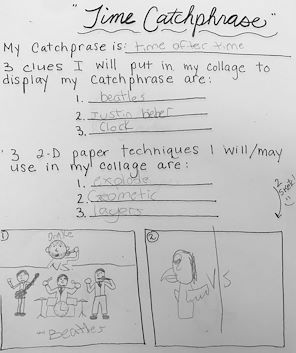 "Time Catchphrase"
My Catchprase is: time after time
3 clues I will put in my collage to
display my catchphrase are:
1. beatles
2. Justin beber
3. Clock
3 2-D paper techniques I will/may
use in my collage are:
1. explode
2. Geometic
3. layers
2 sketch!
①
Drake
VS.
-Beatles
②
VS